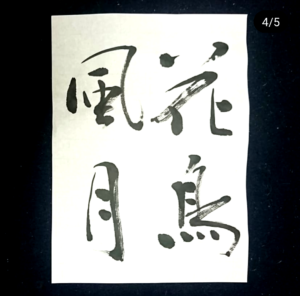 花鳥
風月
4/5